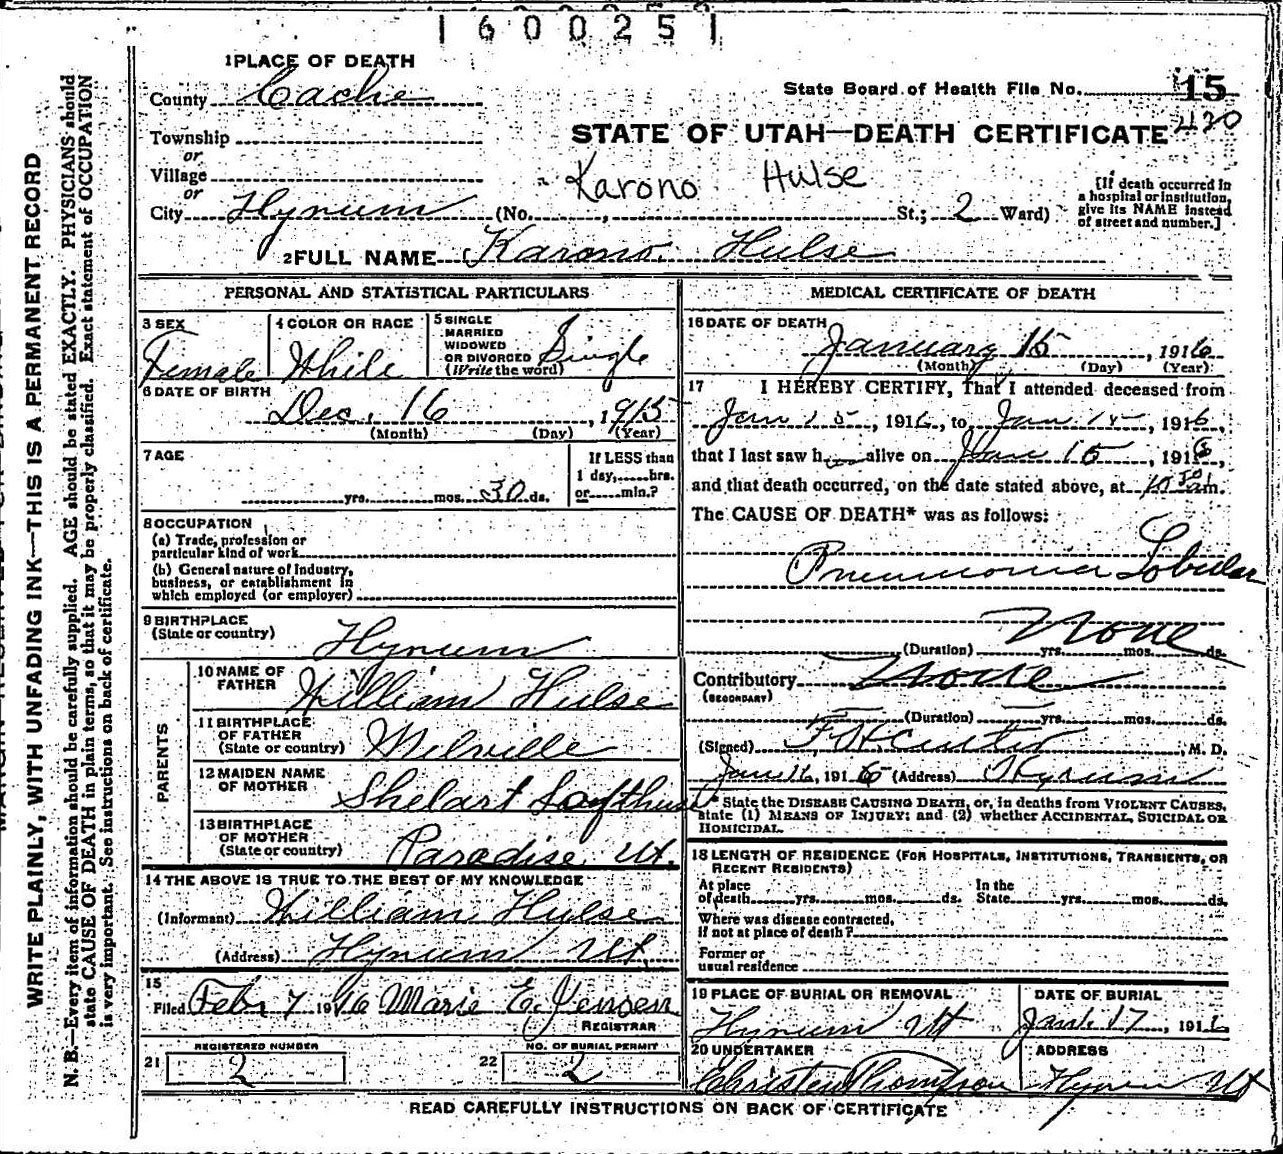 1600251
1 PLACE OF DEATH
County Cache
State Board of Health File No. 15
420
Township
or
Village
or
City Hyrum (No. , St.; 2 Ward)
STATE OF UTAH—DEATH CERTIFICATE
Karono Hulse
[If death occurred in
a hospital or institution,
give its NAME instead
of street and number.]
2 FULL NAME Karono Hulse
PERSONAL AND STATISTICAL PARTICULARS
3 SEX
Female
4 COLOR OR RACE
White
5 SINGLE
MARRIED
WIDOWED
OR DIVORCED
(Write the word)
Single
6 DATE OF BIRTH
Dec. 16, 1915
(Month) (Day) (Year)
7 AGE
yrs. mos. 30 ds.
If LESS than
1 day, hrs.
or min.?
8 OCCUPATION
(a) Trade, profession or
particular kind of work
(b) General nature of industry,
business, or establishment in
which employed (or employer)
9 BIRTHPLACE
(State or country)
Hyrum
PARENTS
10 NAME OF
FATHER
William Hulse
11 BIRTHPLACE
OF FATHER
(State or country)
Milville
12 MAIDEN NAME
OF MOTHER
13 BIRTHPLACE
OF MOTHER
(State or country)
Paradise Ut.
14 THE ABOVE IS TRUE TO THE BEST OF MY KNOWLEDGE
(Informant) William Hulse
(Address) Hyrum Ut.
15
Filed Feb 7 1916 Marie E. Jensen
REGISTRAR
REGISTERED NUMBER
21 2
NO. OF BURIAL PERMIT
22 2
MEDICAL CERTIFICATE OF DEATH
16 DATE OF DEATH
January 15, 1916
(Month) (Day) (Year)
17 I HEREBY CERTIFY, That I attended deceased from
Jan 15, 1916, to Jan 15, 1916,
that I last saw h alive on Jan 15, 1916,
and that death occurred, on the date stated above, at 10 30 am.
The CAUSE OF DEATH* was as follows:
Pneumonia Lobular
None
(Duration) yrs. mos. ds.
Contributory None
(SECONDARY)
(Duration) yrs. mos. ds.
(Signed) M. D.
Jan 16, 1916 (Address) Hyrum
* State the DISEASE CAUSING DEATH, or, in deaths from VIOLENT CAUSES,
state (1) MEANS OF INJURY; and (2) whether ACCIDENTAL, SUICIDAL OR
HOMICIDAL.
18 LENGTH OF RESIDENCE (FOR HOSPITALS, INSTITUTIONS, TRANSIENTS, OR
RECENT RESIDENTS)
At place
of death yrs. mos. ds.
In the
State yrs. mos. ds.
Where was disease contracted,
if not at place of death?
Former or
usual residence
19 PLACE OF BURIAL OR REMOVAL
Hyrum Ut
DATE OF BURIAL
Jan. 17, 1916
20 UNDERTAKER
Christen Thompson
ADDRESS
Hyrum Ut
READ CAREFULLY INSTRUCTIONS ON BACK OF CERTIFICATE
WRITE PLAINLY, WITH UNFADING INK—THIS IS A PERMANENT RECORD
N. B.—Every item of information should be carefully supplied. AGE should be stated EXACTLY. PHYSICIANS should
state CAUSE OF DEATH in plain terms, so that it may be properly classified. Exact statement of OCCUPATION
is very important. See instructions on back of certificate.